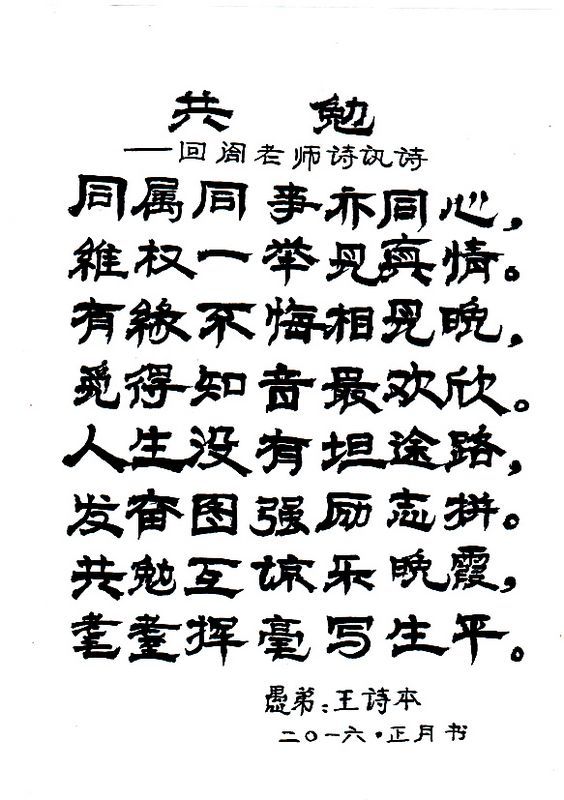 共 勉
——回阎老师诗讯诗
同属同事亦同心，
維权一举见真情。
有緣不悔相见晚，
觅得知音最欢欣。
人生没有坦途路，
发奋图强励志拼。
共勉互谅乐晚霞，
耄耋挥毫写生平。
愚弟：王诗本
二〇一六·正月书